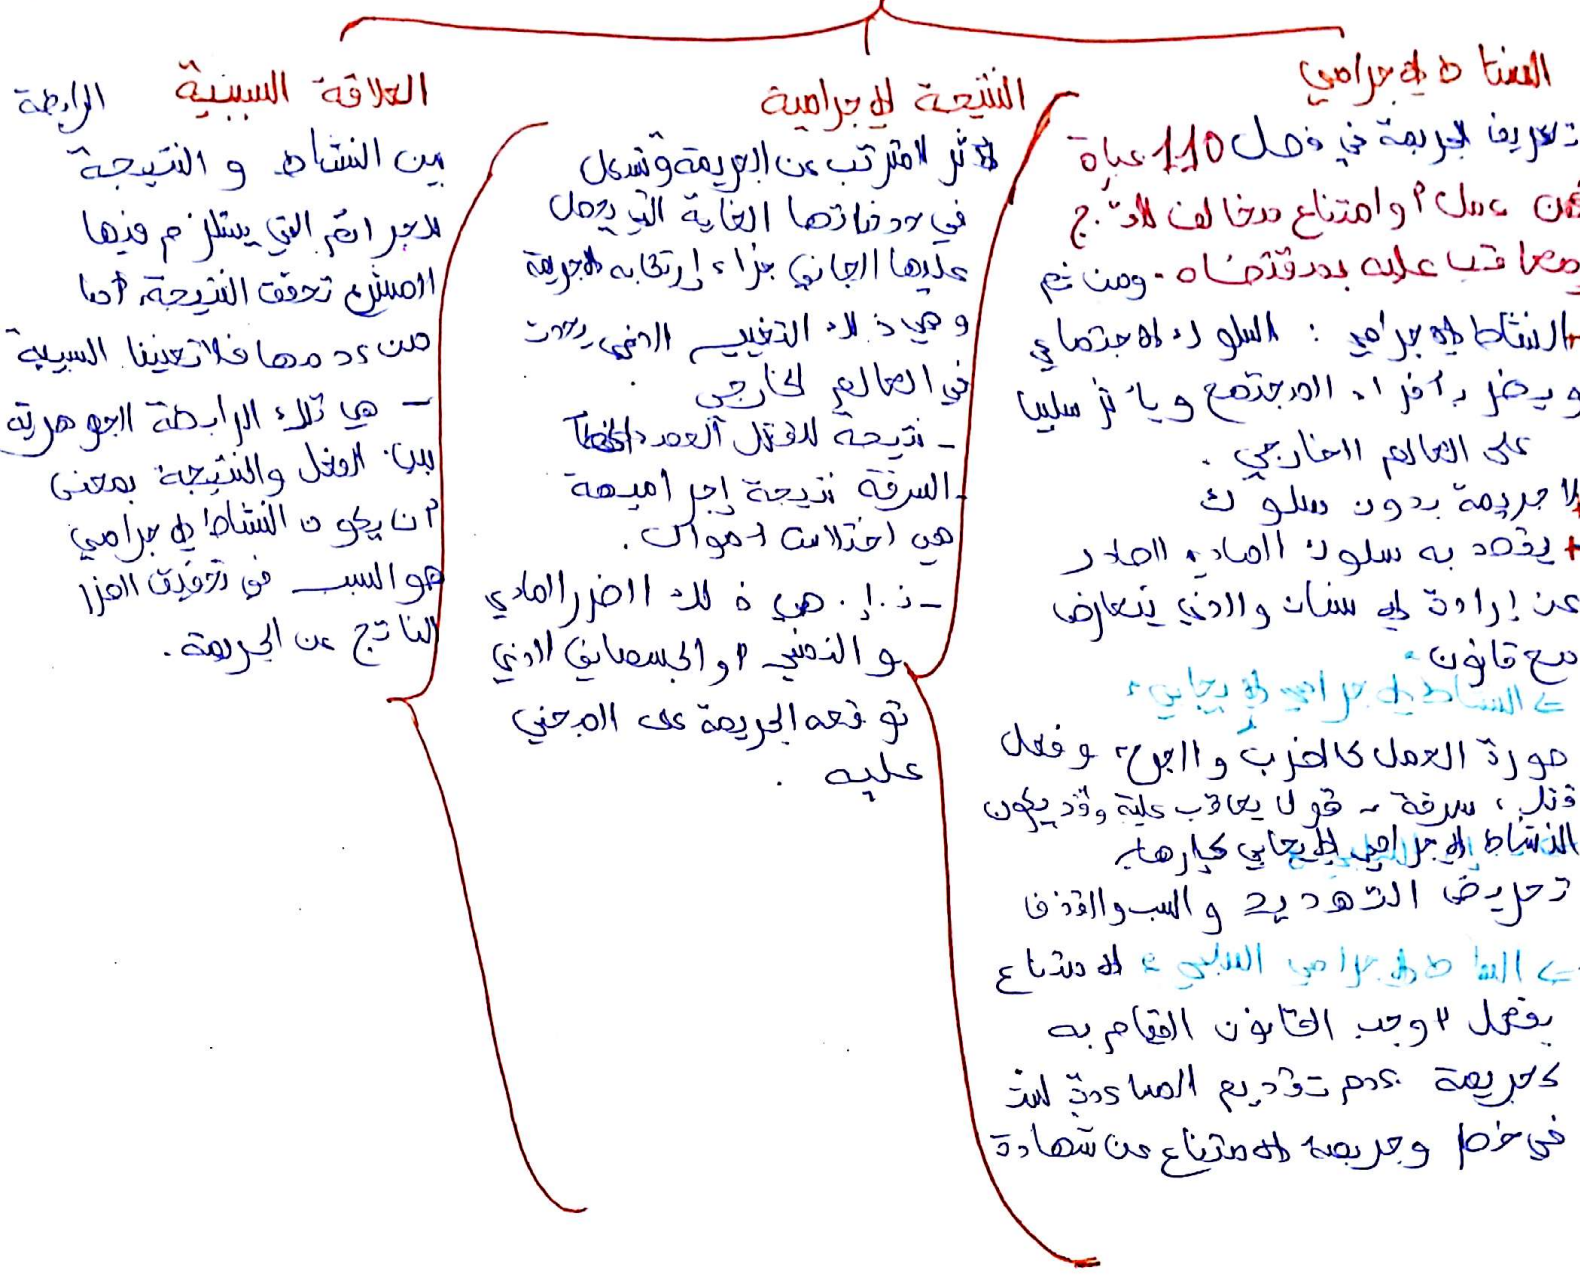 النشاط الإجرامي
تعريف الجريمة في فصل 110 عبارة
عن عمل أو امتناع مخالف للق.ج
معاقب عليه بمقتضاه. ومن ثم
+ النشاط الإجرامي : السلوك الاجتماعي
ويضر بأفراد المجتمع ويأثر سلبيا
على العالم الخارجي .
لا جريمة بدون سلوك
+ يقصد به سلوك المادي الصادر
عن إرادة الإنسان والذي يتعارض
مع قانون.
=> النشاط الإجرامي الإيجابي :
صورة العمل كالضرب والجرح، وفعل
قتل، سرقة - قول يعاقب عليه وقد يكون
النشاط الإجرامي الإيجابي
تحريض التهديد والسب والقذف
=> النشاط الإجرامي السلبي : الامتناع
بفعل أوجب القانون القيام به
كجريمة عدم تقديم المساعدة
في خطر وجريمة الامتناع عن شهادة
النتيجة الإجرامية
الأثر المترتب عن الجريمة وتشكل
في حد ذاتها الغاية التي يحصل
عليها الجاني جزاء إرتكابه الجريمة
وهي ذلك التغيير الذي يحدث
في العالم الخارجي .
- نتيجة للقتل العمد
- السرقة نتيجة إجراميهة
هي اختلاس اموال .
- ن.إ. هي ذلك الضرر المادي
و النفسي أو الجسماني الذي
توقعه الجريمة على المجني
عليه .
العلاقة السببية الرابطة
بين النشاط و النتيجة
للجرائم التي يستلزم فيها
المشرع تحقق النتيجة، أما
من عدمها فلا تعنينا السببية
- هي تلك الرابطة الجوهرية
بين الفعل والنتيجة بمعنى
أن يكون النشاط الإجرامي
هو السبب في تحقيق الضرر
الناتج عن الجريمة.